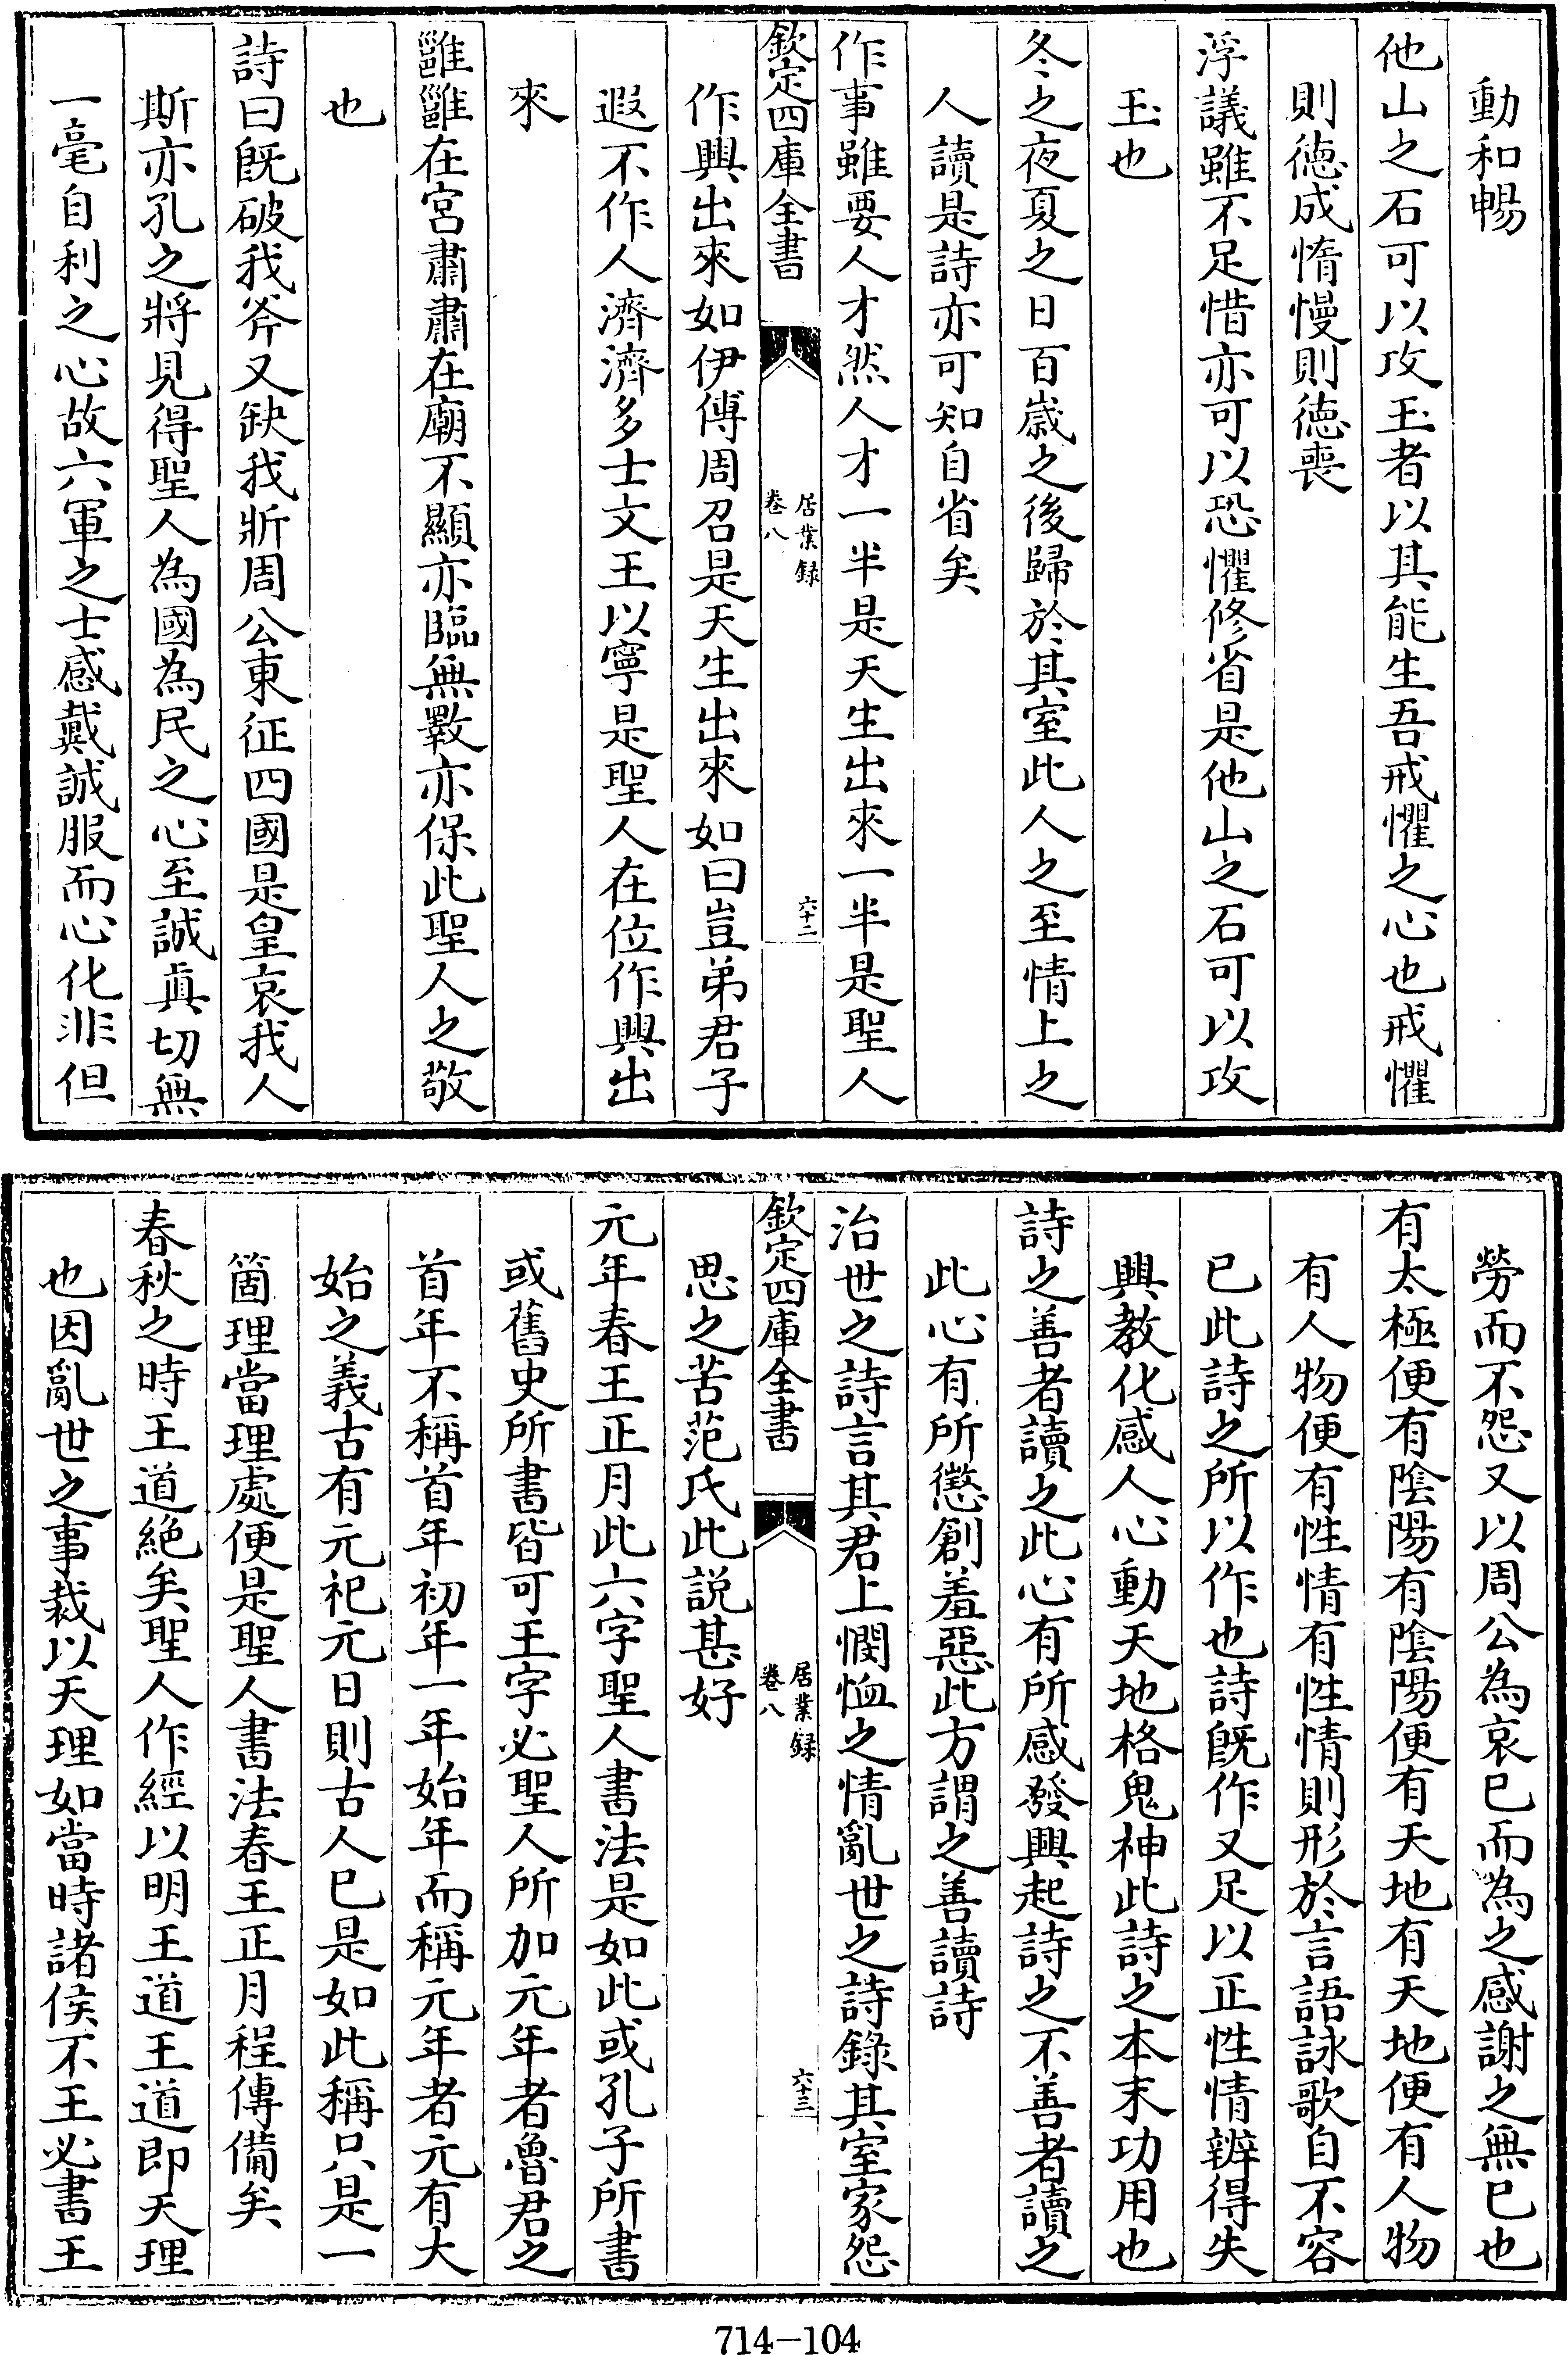 動和暢
他山之石可以攻玉者以其能生吾戒懼之心也戒懼
則德成惰慢則德喪
浮議雖不足惜亦可以恐懼修省是他山之石可以攻
玉也
冬之夜夏之日百歲之後歸於其室此人之至情上之
人讀是詩亦可知自省矣
作事雖要人才然人才一半是天生出來一半是聖人
欽定四庫全書
居業録
卷八
六十二
作興出來如伊傅周召是天生出來如曰豈弟君子
遐不作人濟濟多士文王以寧是聖人在位作興出
來
雝雝在宮肅肅在廟不顯亦臨無斁亦保此聖人之敬
也
詩曰旣破我斧又缺我斨周公東征四國是皇哀我人
斯亦孔之將見得聖人為國為民之心至誠眞切無
一毫自利之心故六軍之士感戴誠服而心化非但
勞而不怨又以周公為哀已而為之感謝之無已也
有太極便有陰陽有陰陽便有天地有天地便有人物
有人物便有性情有性情則形於言語詠歌自不容
已此詩之所以作也詩旣作又足以正性情辨得失
興教化感人心動天地格鬼神此詩之本末功用也
詩之善者讀之此心有所感發興起詩之不善者讀之
此心有所懲創羞惡此方謂之善讀詩
治世之詩言其君上憫恤之情亂世之詩錄其室家怨
欽定四庫全書
居業録
卷八
六十三
思之苦范氏此説甚好
元年春王正月此六字聖人書法是如此或孔子所書
或舊史所書皆可王字必聖人所加元年者魯君之
首年不稱首年初年一年始年而稱元年者元有大
始之義古有元祀元日則古人已是如此稱只是一
箇理當理處便是聖人書法春王正月程傳備矣
春秋之時王道絕矣聖人作經以明王道王道即天理
也因亂世之事裁以天理如當時諸侯不王必書王
714-104